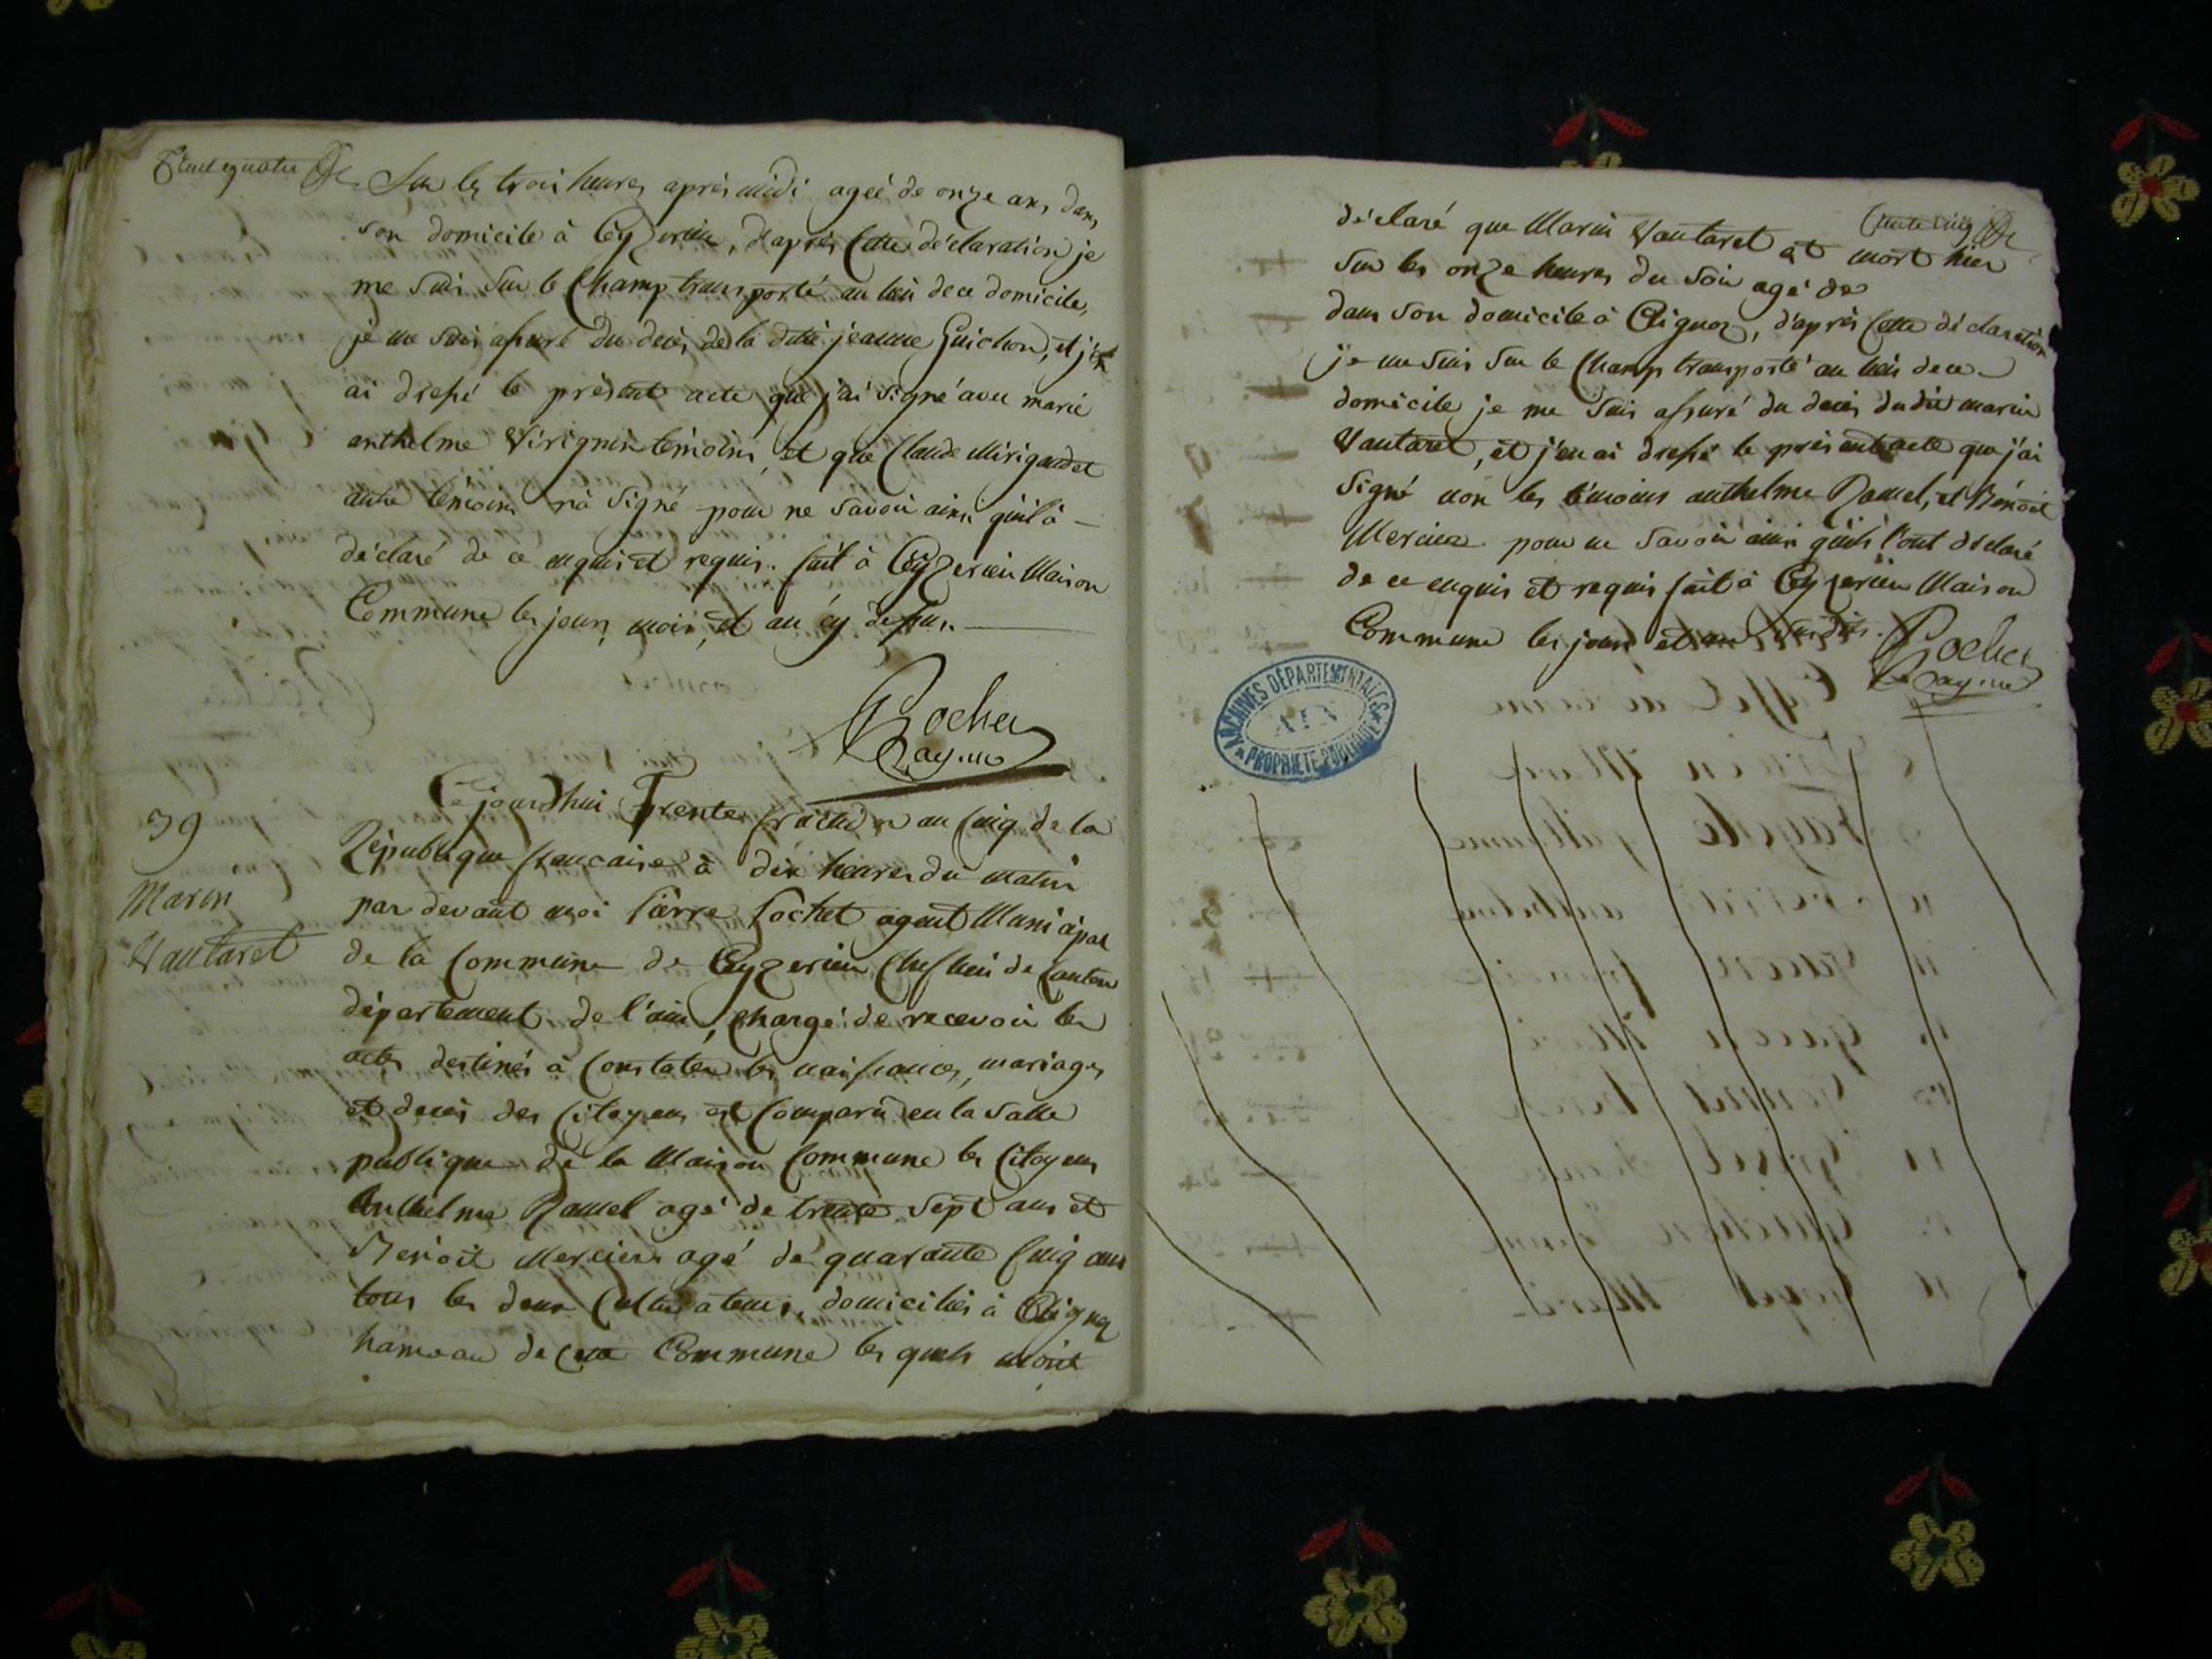 trente quatre
Sur les trois heures après midi agée de onze ans, dans
son domicile à Ceyzerieu, d'après cette déclaration je
me suis sur le Champ transporté au lieu de ce domicile,
je me suis assuré du décès de la dite jeanne Guichon, et j'en
ai dressé le présent acte que j'ai signé avec marie
anthelme Virignin témoins, et que Claude Mirigaudet
autre témoins n'à signé pour ne savoir ainsi quil à
déclaré de ce enquis et requis. fait à Ceyzerieu Maison
Commune les jours, mois, et an cy dessus.
39
Marin
Vautaret
Cejourd'hui Trente an cinq de la
République francaise à dix heures du matin
par devant moi pierre pochet agent Municipal
de la Commune de Ceyzerieu Chef lieu de Canton
département de l'ain, chargé de recevoir les
actes destinés à Constater les naissances, mariages
et deces des Citoyens est Comparu en la Salle
publique de la Maison Commune les Citoyens
Anthelme Ramel agé de trente sept ans et
Benoit Mercier agé de quarante cinq ans
tous les deux Cultivateurs, domiciliés à Aignoz
hameau de cette Commune les quels m'ont
trente cinq
déclaré que Marin Vautaret est mort hier
sur les onze heures du soir agé de
dans son domicile à Aignoz, d'après cette déclaration
je me suis sur le Champ transporté au lieu de ce
domicile je me suis assuré du decès dudit marin
Vautaret, et j'en ai dressé le présent acte que j'ai
signé non les témoins anthelme Ramel, et Benoit
Mercier pour ne savoir ainsi quils l'ont déclaré
de ce enquis et requis fait à Ceyzerieu Maison
Commune les jours et an susdits.
ARCHIVES DÉPARTEMENTALES
AIN
PROPRIÉTÉ PUBLIQUE